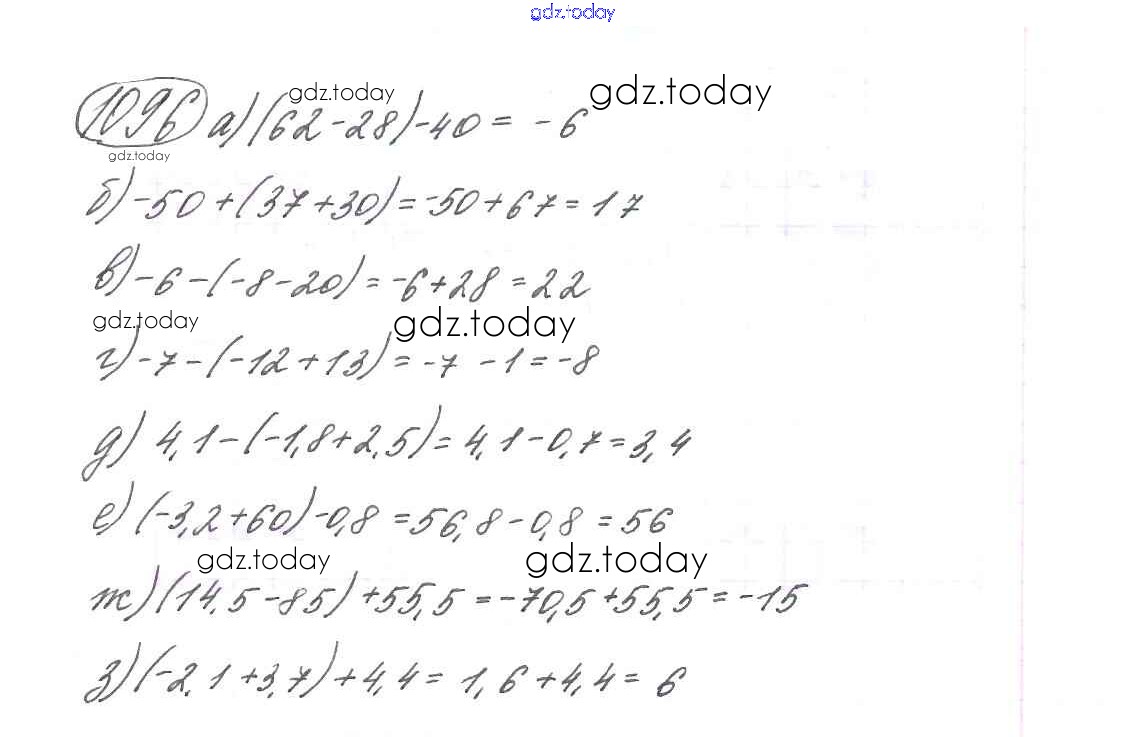 gdz.today
1096 а) (62-28)-40 = -6
gdz.today
gdz.today
gdz.today
б) -50+(37+30)=-50+67=17
в) -6-(-8-20)=-6+28=22
gdz.today
gdz.today
г) -7-(-12+13)=-7-1=-8
д) 4,1-(-1,8+2,5)=4,1-0,7=3,4
е) (-3,2+60)-0,8=56,8-0,8=56
gdz.today
gdz.today
ж) (14,5-85)+55,5=-70,5+55,5=-15
з) (-2,1+3,7)+4,4=1,6+4,4=6